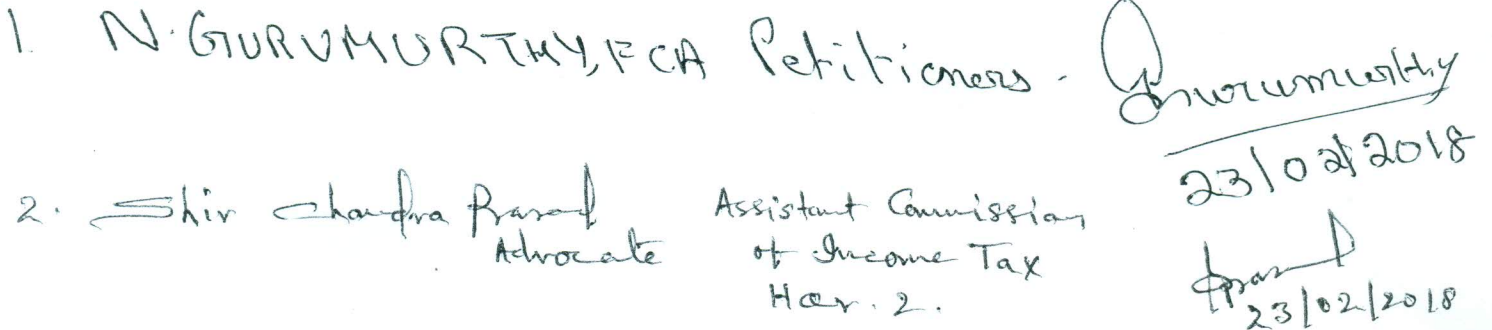 1. N. GURUMURTHY, FCA Petitioners - Gurumurthy
23/02/2018
2. Shiv Chandra Prasad Assistant Commission
Advocate of Income Tax
Har. 2. Prasad
23/02/2018